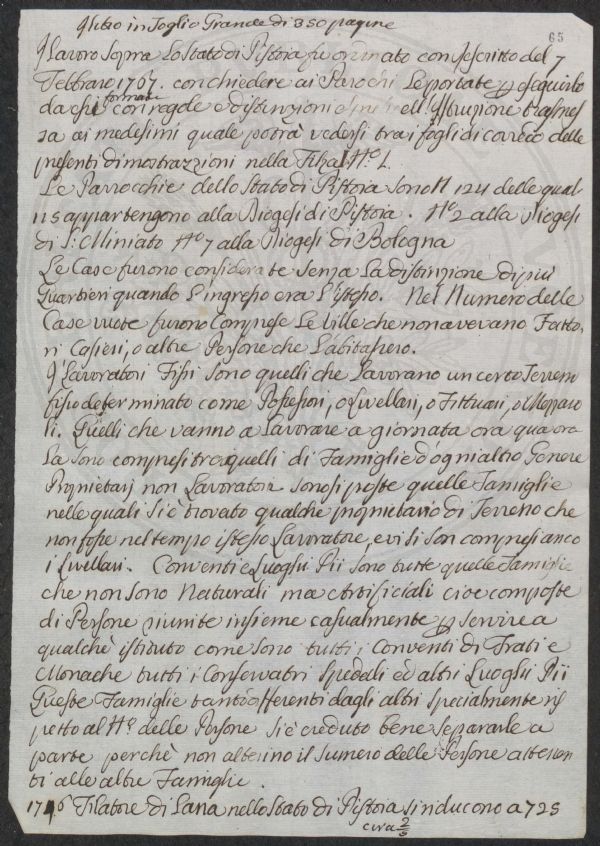 Libro in foglio Grande di 350 pagine
65
Il Lavoro sopra lo Stato di Pistoia fu ordinato con Rescritto del 7
Febbraro 1767. con chiedere ai Parochi le portate p eseguirlo
da essi formate con regole e distinzioni nell'Istruzione trasmes
sa ai medesimi quale potrà vedersi tra i fogli di correo delle
presenti dimostrazzioni nella Filza N.o 1.
Le Parrocchie dello Stato di Pistoia sono N 124 delle quali
115 appartengono alla Diogesi di Pistoia. N.o 2 alla Diogesi
di S: Miniato N.o 7 alla Diogesi di Bologna
Le Case furono considerate senza la distinzione di piu
Quartieri quando l'ingresso era l'istesso. Nel Numero delle
Case vuote furono Comprese le Ville che non avevano Fatto,
ri Casieri, o altre Persone che l'abitassero.
I Lavoratori Fissi sono quelli che Lavorano un certo Terreno
fisso determinato come Possessori, o Livellari, o Fittuari, o Mezzaio
li. Quelli che vanno a Lavorare a giornata ora qua ora
la sono compresi tra quelli di Famiglie d'ogni altro Genere
Proprietarj non Lavoratori sonosi poste quelle Famiglie
nelle quali si è trovato qualche proprietario di Terreno che
non fosse nel tempo istesso Lavoratore, e vi si son compresi anco
i Livellari. Conventi e Luoghi Pii sono tutte quelle Famiglie
che non sono Naturali ma Artificiali cioe composte
di Persone riunite insieme casualmente p servire a
qualche istituto come sono tutti i Conventi di Frati e
Monache tutti i Conservatri Spedali ed altri Luoghi Pii
Queste Famiglie tanto differenti dagli altri specialmente ris
petto al N.o delle Persone si è creduto bene separarle a
parte perchè non alterino il Numero delle Persone attenen
ti alle altre Famiglie.
Filatore di Lana nello Stato di Pistoia si riducono a 725
circa 2/3